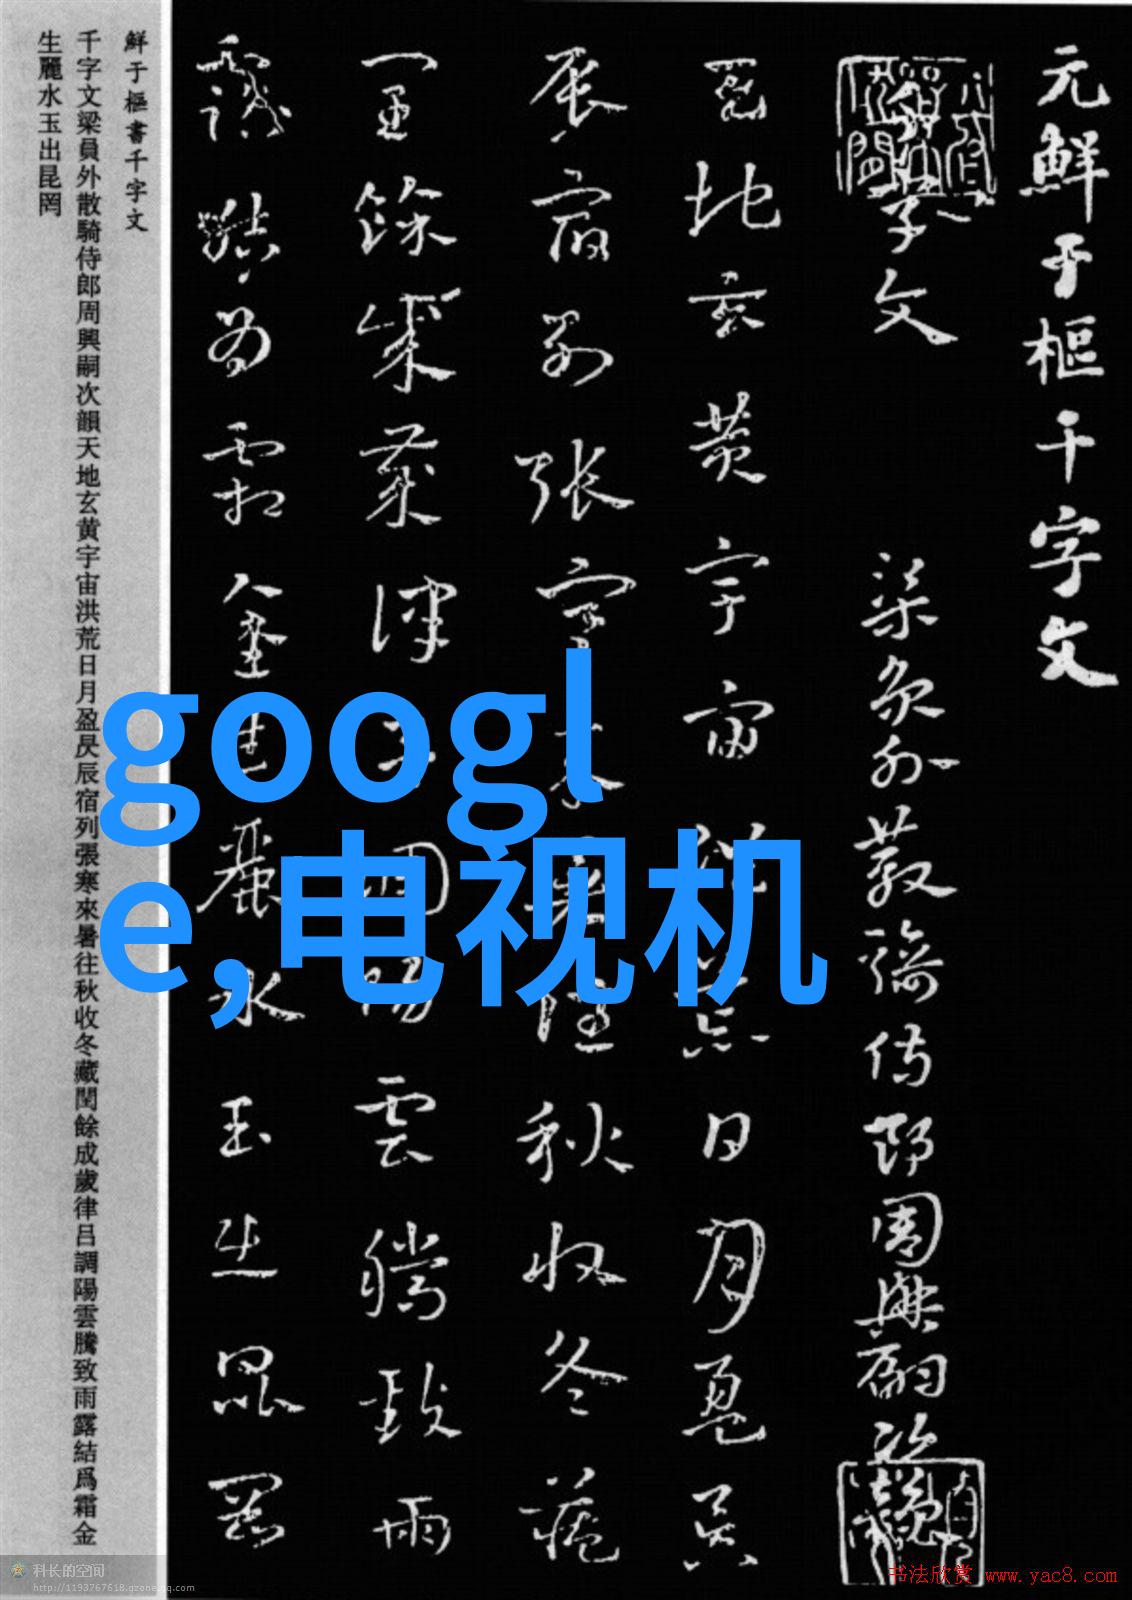 元鮮于樞千字文
千字文 梁員外散騎侍郎周興嗣次韻
天地玄黃宇宙洪荒日月盈昃
辰宿列張寒來暑往秋收冬藏
閏餘成歲律呂調陽雲騰致雨
露結為霜金生麗水玉出昆岡
鮮于樞書千字文
千字文梁員外散騎侍郎周興嗣次韻天地玄黃宇宙洪荒日月盈昃辰宿列張寒來暑往秋收冬藏閏餘成歲律呂調陽雲騰致雨露結爲霜金
生麗水玉出昆罔
googl
e,电视机
科长的空间
http://1193767618.qzone.qq.com
书法欣赏 www.yac8.com